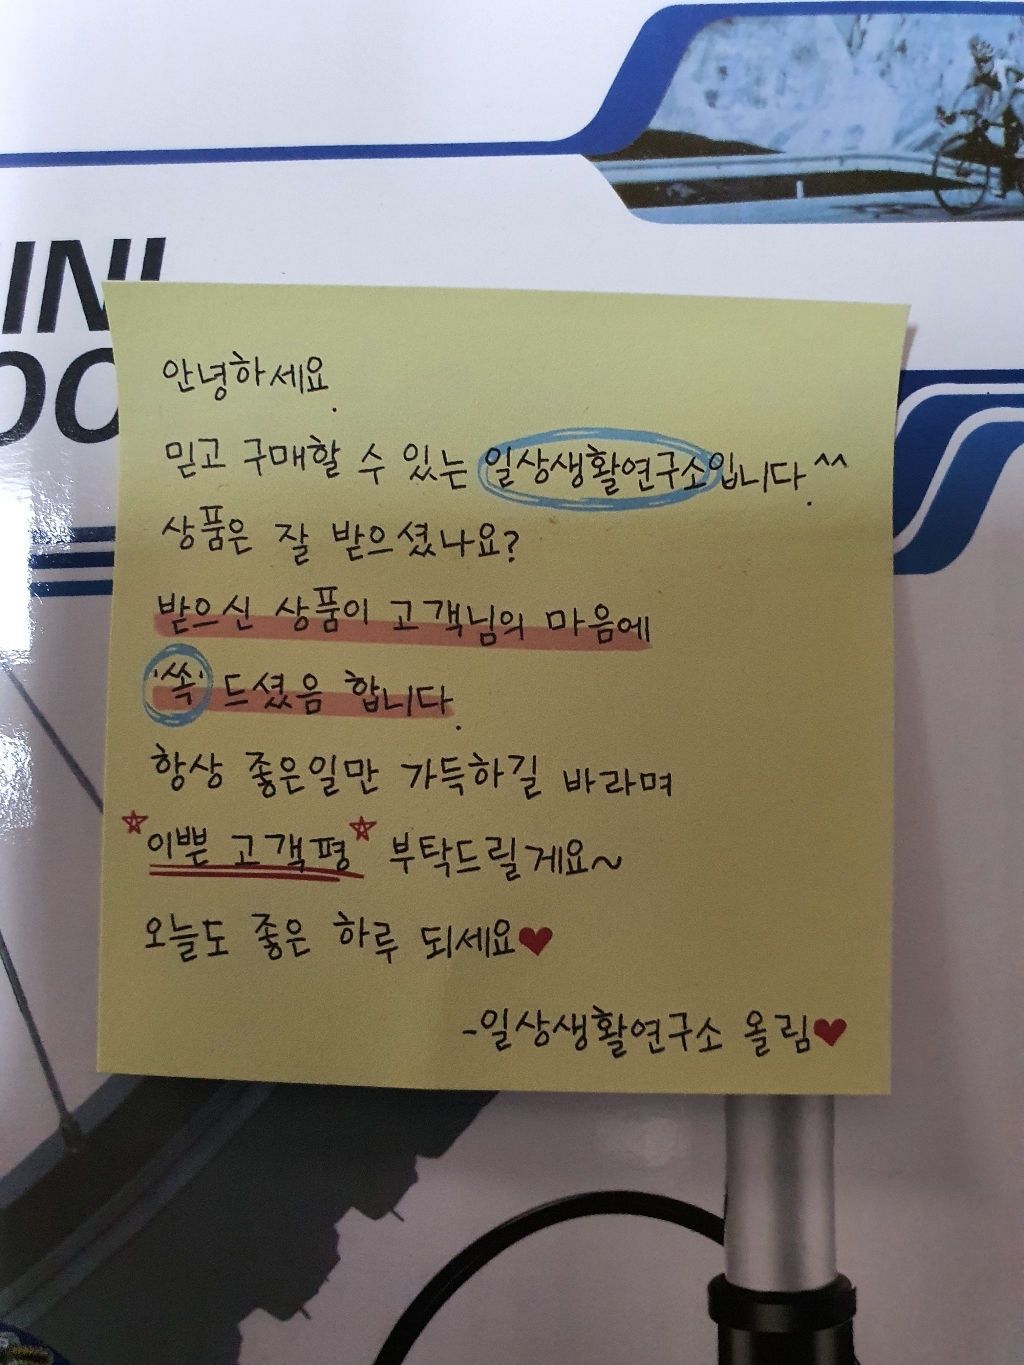 INI
OO
안녕하세요.
믿고 구매할 수 있는 일상생활연구소입니다.^^
상품은 잘 받으셨나요?
받으신 상품이 고객님의 마음에
'쏙' 드셨음 합니다.
항상 좋은일만 가득하길 바라며
☆이쁜 고객평☆ 부탁드릴게요~
오늘도 좋은 하루 되세요♥
-일상생활연구소 올림♥